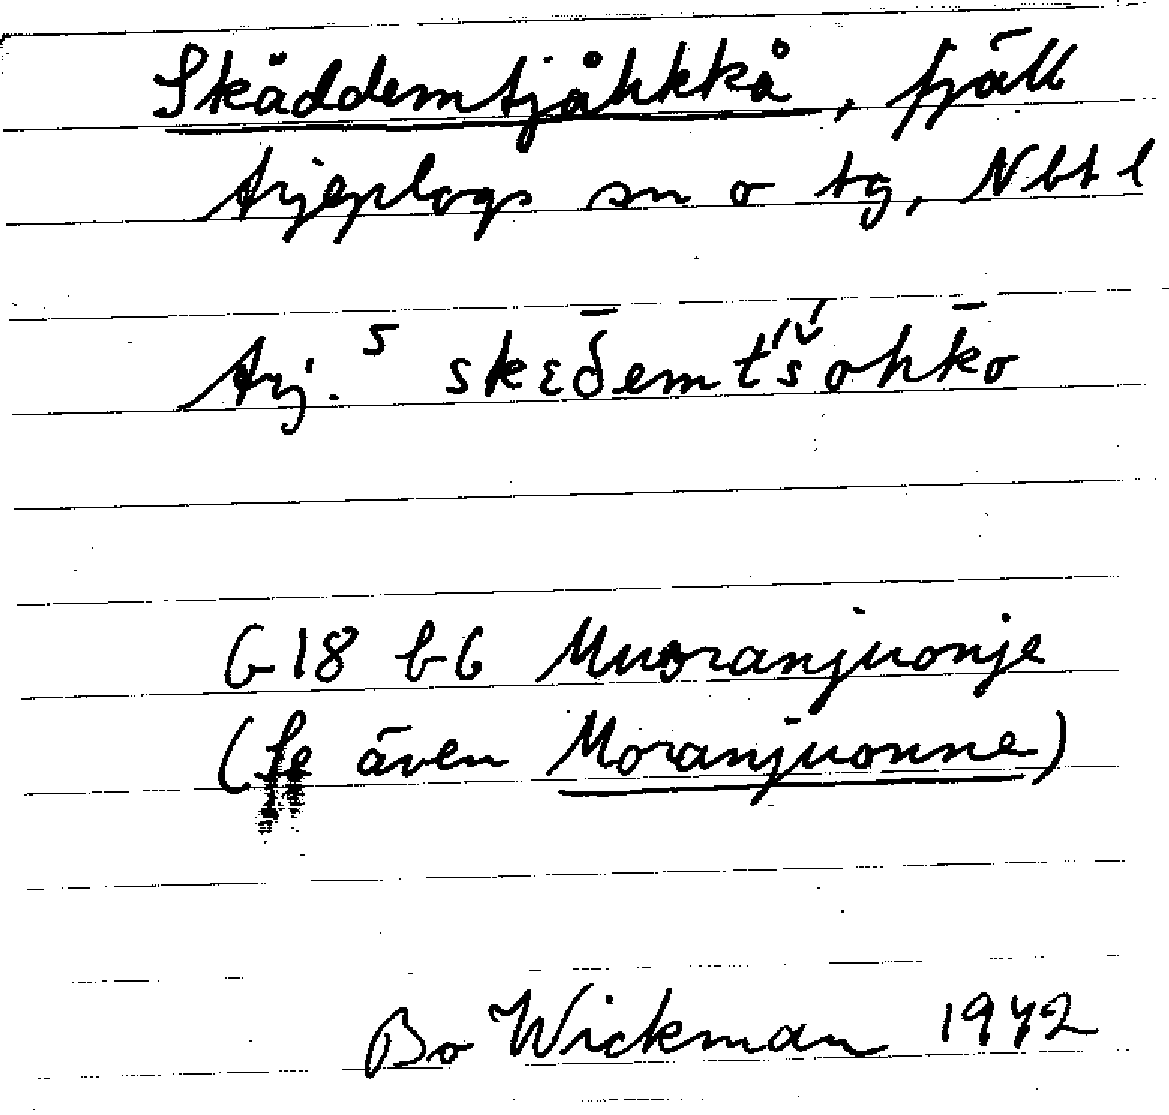 Skäddemtjåhkkå, fjäll
Arjeplogs sn o tg, Nbt l
Arj. S skɛδ̄emt́š́ohk̄o
G 18 b 6 Muoranjuonje
(Se även Moranjuonne)
Bo Wickman 1942